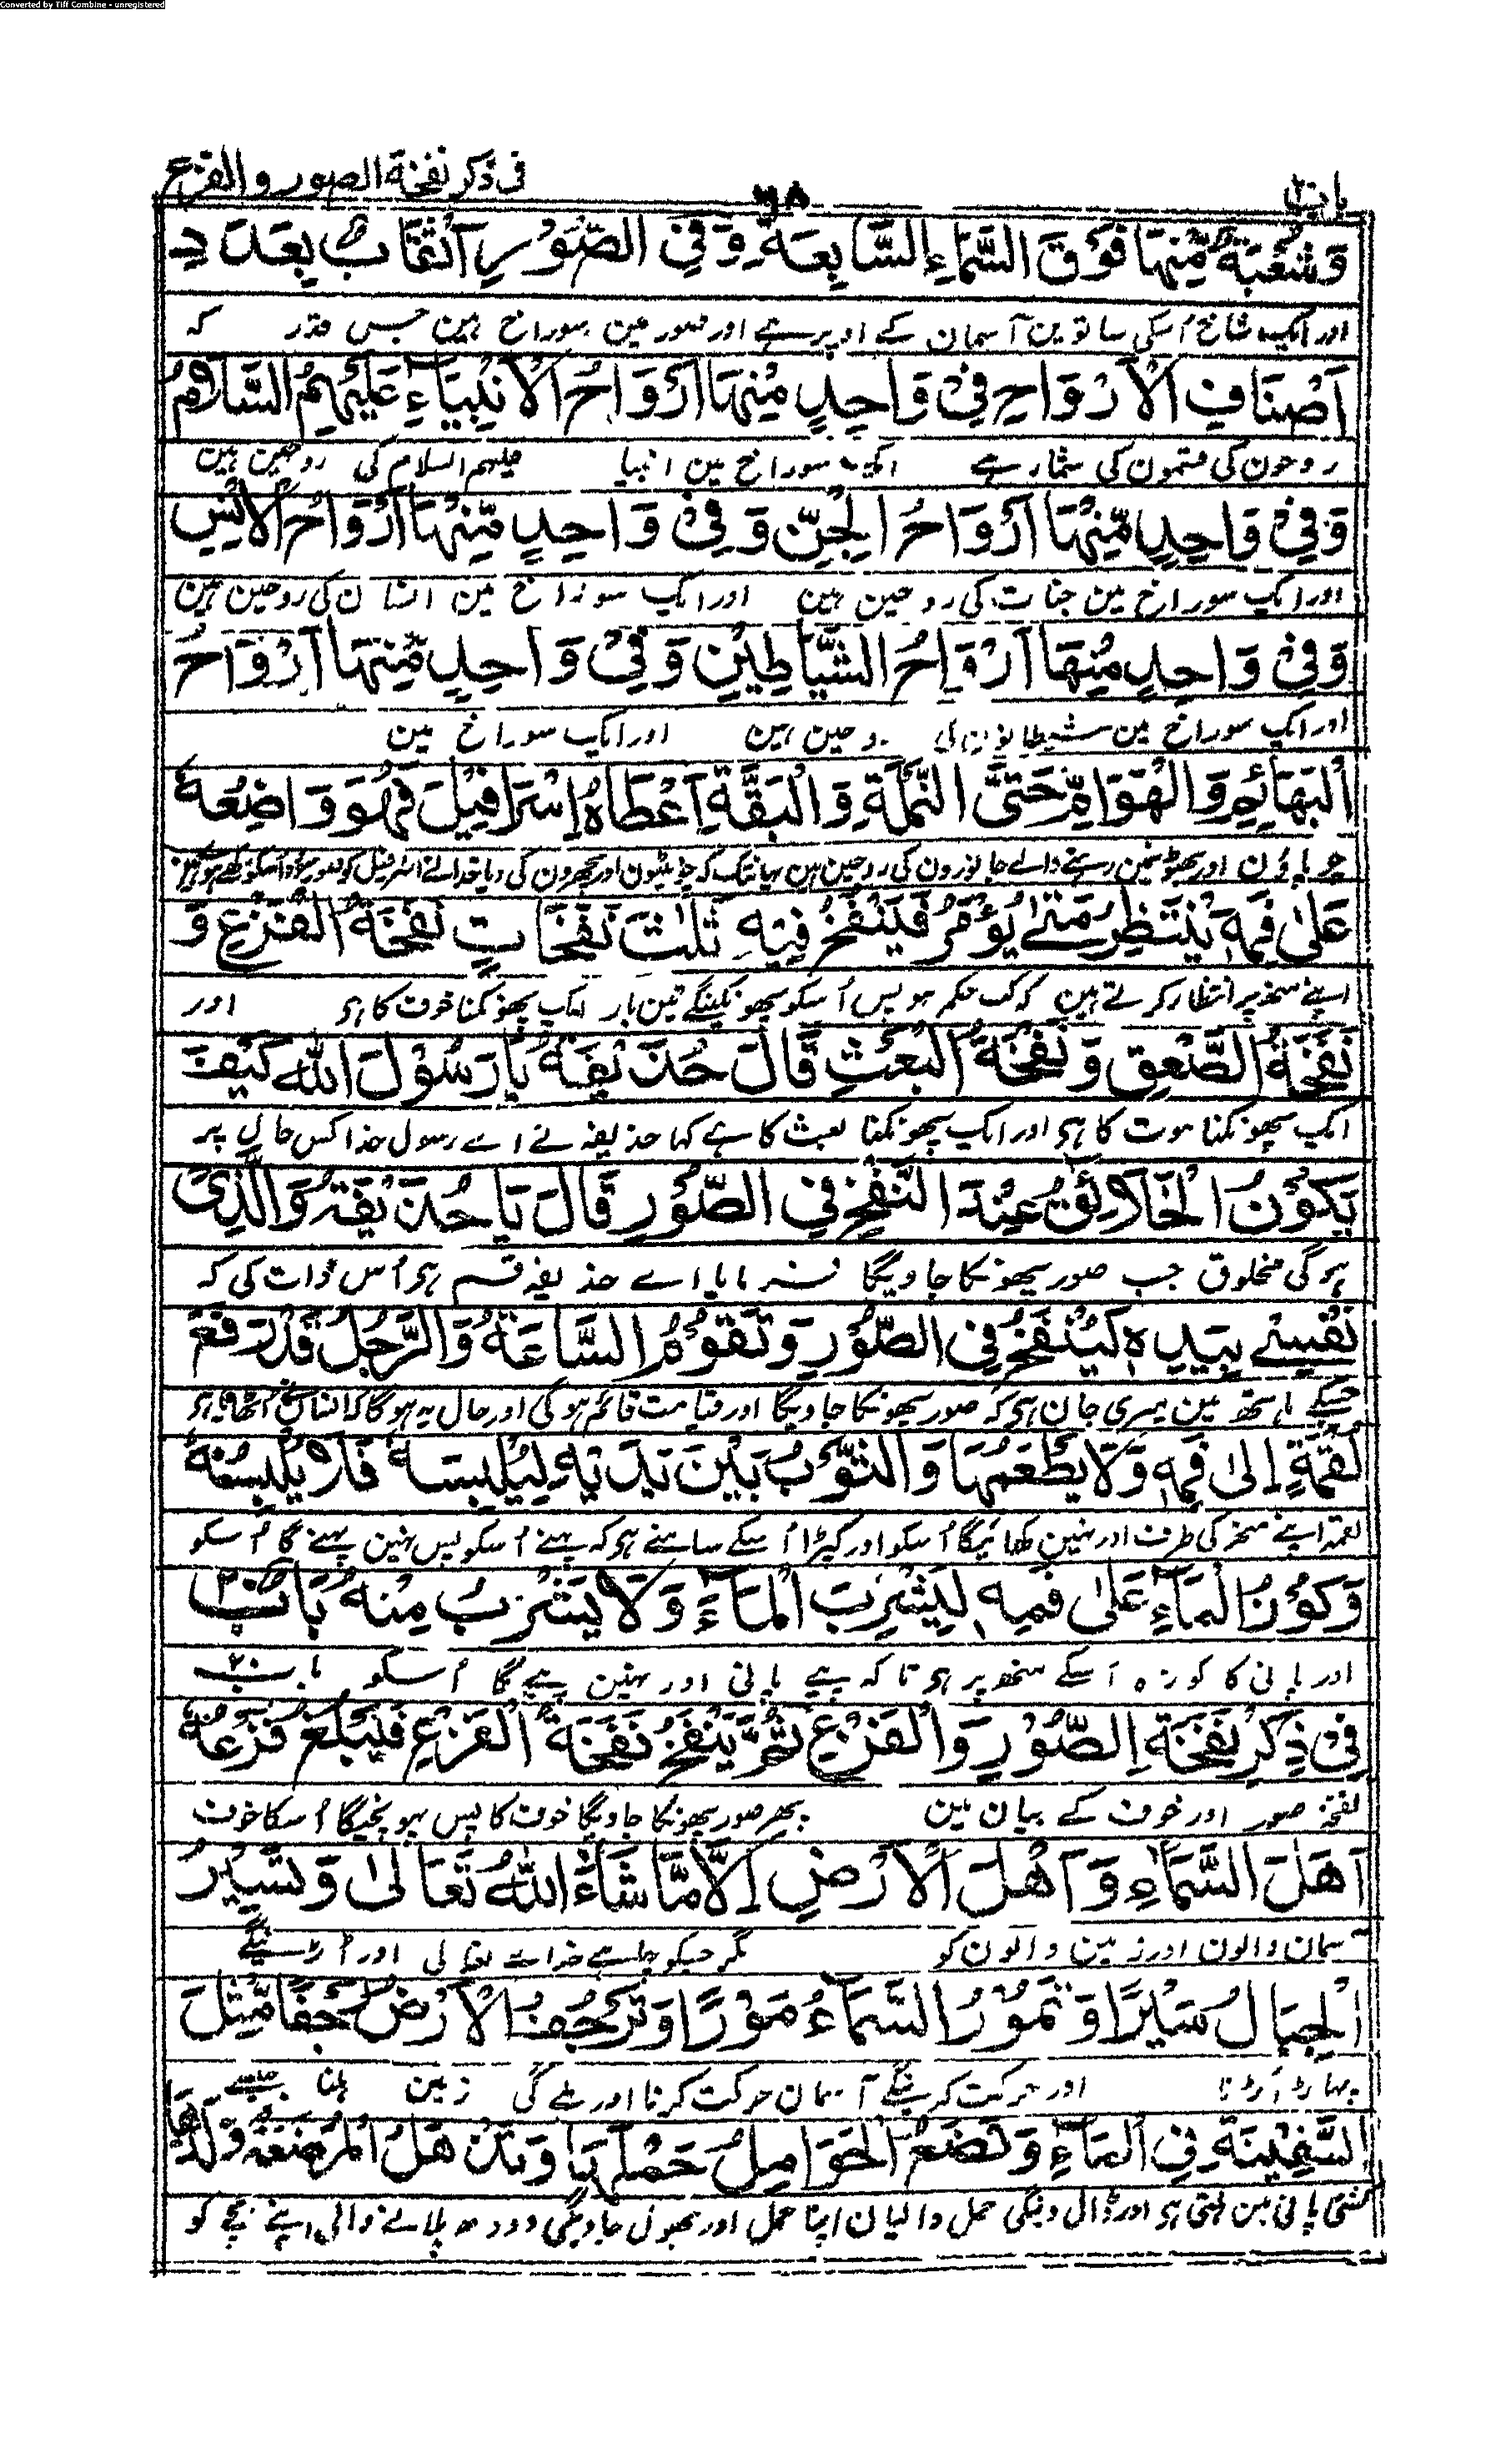 Converted by Tiff Combine - unregistered
باب ٢٠ ٦٨ فی ذکر نفخة الصور والفزع
وَشُعْبَةٌ مِّنْهَا فَوْقَ السَّمَاءِ السَّابِعَةِ وَفِي الصُّوْرِ اَثْقَابٌ بِعَدَدِ
اور ایک شاخ اُسکی ساتوین آسمان کے اوپر ہے اور صور مین سوراخ ہین جس قدر کہ
اَصْنَافِ الْاَرْوَاحِ فِيْ وَاحِدٍ مِّنْهَا اَرْوَاحُ الْاَنْبِيَآءِ عَلَيْهِمُ السَّلَامُ
روحون کی قسمون کی شمار ہے ایک سوراخ مین انبیا علیہم السلام کی روحین ہین
وَفِيْ وَاحِدٍ مِّنْهَا اَرْوَاحُ الْجِنِّ وَفِيْ وَاحِدٍ مِّنْهَا اَرْوَاحُ الْاِنْسِ
اور ایک سوراخ مین جنات کی روحین ہین اور ایک سوراخ مین انسان کی روحین ہین
وَفِيْ وَاحِدٍ مِّنْهَا اَرْوَاحُ الشَّيَاطِيْنِ وَفِيْ وَاحِدٍ مِّنْهَا اَرْوَاحُ
اور ایک سوراخ مین شیطانون کی روحین ہین اور ایک سوراخ مین
الْبَهَائِمِ وَالْهَوَامِّ حَتَّى النَّمْلَةِ وَالْبَقَّةِ اَعْطَاهُ اِسْرَافِيْلَ فَهُوَ وَاضِعُهٗ
چوپاؤن اور رہنے والے جانورون کی روحین ہین یہانتک کہ چونٹیون اور مچھرون کی دیا خدا نے اسرافیل کو صور
عَلٰى فَمِهٖ يَنْتَظِرُ مَتٰى يُؤْمَرُ فَيَنْفُخُ فِيْهِ ثَلٰثَ نَفَخَاتٍ نَفْخَةُ الْفَزَعِ وَ
اپنے منھ پر انتظار کرتے ہین کہ کب حکم ہو پس اُسکو پھونکینگے تین بار ایک پھونکنا خوف کا ہی اور
نَفْخَةُ الصَّعِقِ وَنَفْخَةُ الْبَعْثِ قَالَ حُذَيْفَةُ يَا رَسُوْلَ اللّٰهِ كَيْفَ
ایک پھونکنا موت کا ہی اور ایک پھونکنا بعث کا ہے کہا حذیفہ نے اے رسول خدا کس حال پر
يَكُوْنُ الْخَلَائِقُ عِنْدَ النَّفْخِ فِي الصُّوْرِ قَالَ يَا حُذَيْفَةُ وَالَّذِيْ
ہوگی مخلوق جب صور پھونکا جاویگا فرمایا اے حذیفہ قسم ہی اُس ذات کی کہ
نَفْسِيْ بِيَدِهٖ لَيُنْفَخُ فِي الصُّوْرِ وَتَقُوْمُ السَّاعَةُ وَالرَّجُلُ قَدْ رَفَعَ
جسکے ہاتھ مین میری جان ہی کہ صور پھونکا جاویگا اور قیامت قائم ہوگی اور حال یہ ہوگا کہ
لُقْمَةً اِلٰى فَمِهٖ وَلَا يَطْعَمُهَا وَالثَّوْبُ بَيْنَ يَدَيْهِ لِيَلْبِسَهٗ فَلَا يَلْبِسُهٗ
لقمہ اپنے منھ کی طرف اور نہین کھائیگا اُسکو اور کپڑا اُسکے سامنے ہی کہ پہنے اُسکو پس نہین پہنے گا اُسکو
وَكُوْزُ الْمَآءِ عَلٰى فَمِهٖ لِيَشْرِبَ الْمَآءَ وَلَا يَشْرَبُ مِنْهُ بَابٌ ٢٠
اور پانی کا کوزہ اُسکے منھ پر ہی تاکہ پیے پانی اور نہین پیے گا اُسکو باب ٢٠
فِيْ ذِكْرِ نَفْخَةِ الصُّوْرِ وَالْفَزَعِ ثُمَّ يَنْفُخُ نَفْخَةَ الْفَزَعِ فَيَبْلُغُ فَزَعُهٗ
نفخۂ صور اور خوف کے بیان مین پھر صور پھونکا جاویگا خوف کا پس پہونچیگا اُسکا خوف
اَهْلَ السَّمَآءِ وَاَهْلَ الْاَرْضِ اِلَّا مَا شَآءَ اللّٰهُ تَعَالٰى وَتَسِيْرُ
آسمان والون اور زمین والون کو مگر جسکو چاہے خداے تعالی اور اُڑینگے
الْجِبَالُ سَيْرًا وَتَمُوْرُ السَّمَآءُ مَوْرًا وَتَرْجُفُ الْاَرْضُ رَجْفًا مِّثْلَ
پہاڑ اُڑنا اور حرکت کرینگے آسمان حرکت کرنا اور ہلے گی زمین ہلنا جیسے
السَّفِيْنَةِ فِي الْمَآءِ وَتَضَعُ الْحَوَامِلُ حَمْلَهَا وَتَذْهَلُ الْمُرْضِعَةُ وَلَدَهَا
کشتی پانی مین ہلتی ہی اور ڈال دینگی حمل والیان اپنا حمل اور بھول جاوینگی دودھ پلانے والی اپنے بچے کو